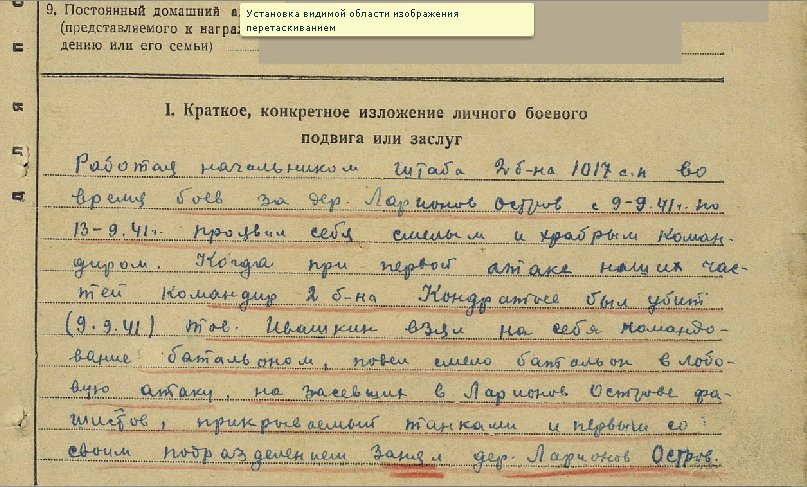 9. Постоянный домашний а
Установка видимой области изображения
перетаскиванием
(представляемого к награ
дению или его семьи)
для по
I. Краткое, конкретное изложение личного боевого
подвига или заслуг
Работая начальником штаба 2 б-на 1017 с.п во
время боев за дер. Ларионов Остров с 9-9-41г. по
13-9.41г. проявил себя смелым и храбрым коман-
диром. Когда при первой атаке наших час-
тей командир 2 б-на Кондратьев был убит
(9.9.41) тов. Ивашкин взял на себя командо-
вание батальоном, повел смело батальон в лобо-
вую атаку, на засевших в Ларионов Острове фа-
шистов, прикрываемый танками и первый со
своим подразделением занял дер. Ларионов Остров.